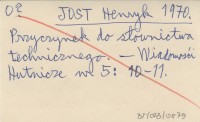 JOST Henryk 1970.
Przyczynek do słownictwa
technicznego. – Wiadomości
Hutnicze nr 5: 10-11.